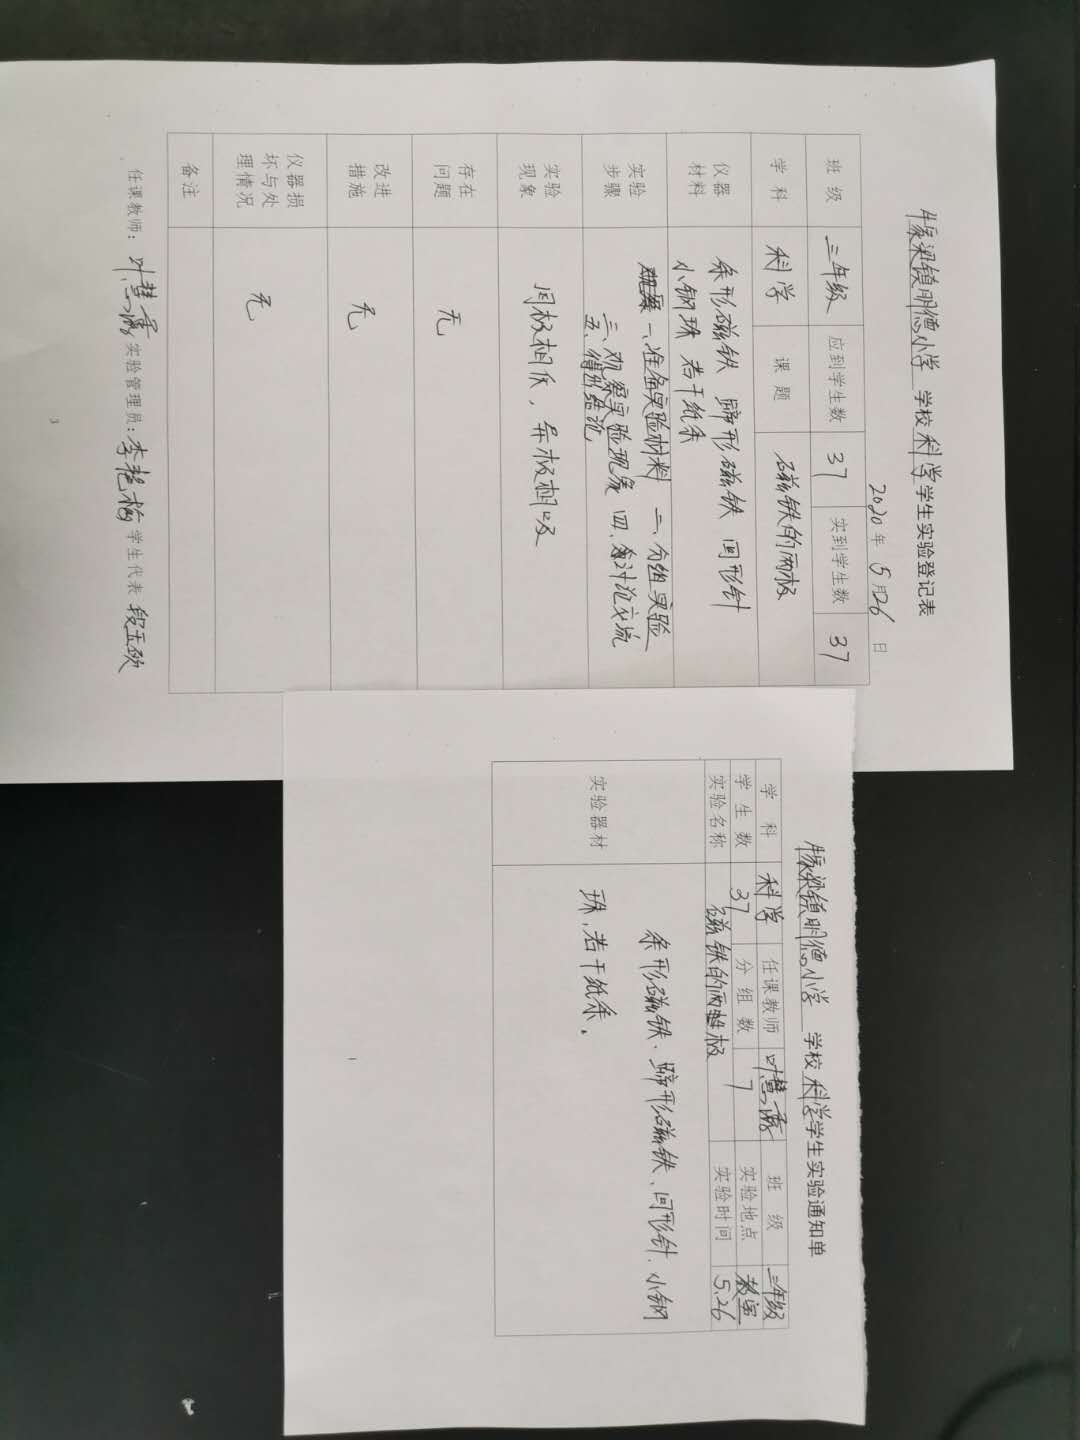 牛家梁镇明德小学 学校 科学 学生实验登记表
2020 年 5 月 26 日
班 级 三年级 应到学生数 37 实到学生数 37
学 科 科学 课 题 磁铁的两极
仪器 材料 条形磁铁 蹄形磁铁 回形针
小钢珠 若干纸条
实验 步骤 一、准备实验材料 二、分组实验
三、观察实验现象 四、讨论交流
五、得出结论
实验 现象 同极相斥，异极相吸
存在 问题 无
改进 措施 无
仪器损 坏与处 理情况 无
备注
任课教师： 实验管理员：李艳梅 学生代表 段玉欣
3
牛家梁镇明德小学 学校 科学 学生实验通知单
学 科 科学 任课教师 班 级 三年级
学 生 数 37 分 组 数 7 实验地点 教室
实验名称 磁铁的两极 实验时间 5.26
实验器材 条形磁铁、蹄形磁铁、回形针、小钢
珠，若干纸条。
1